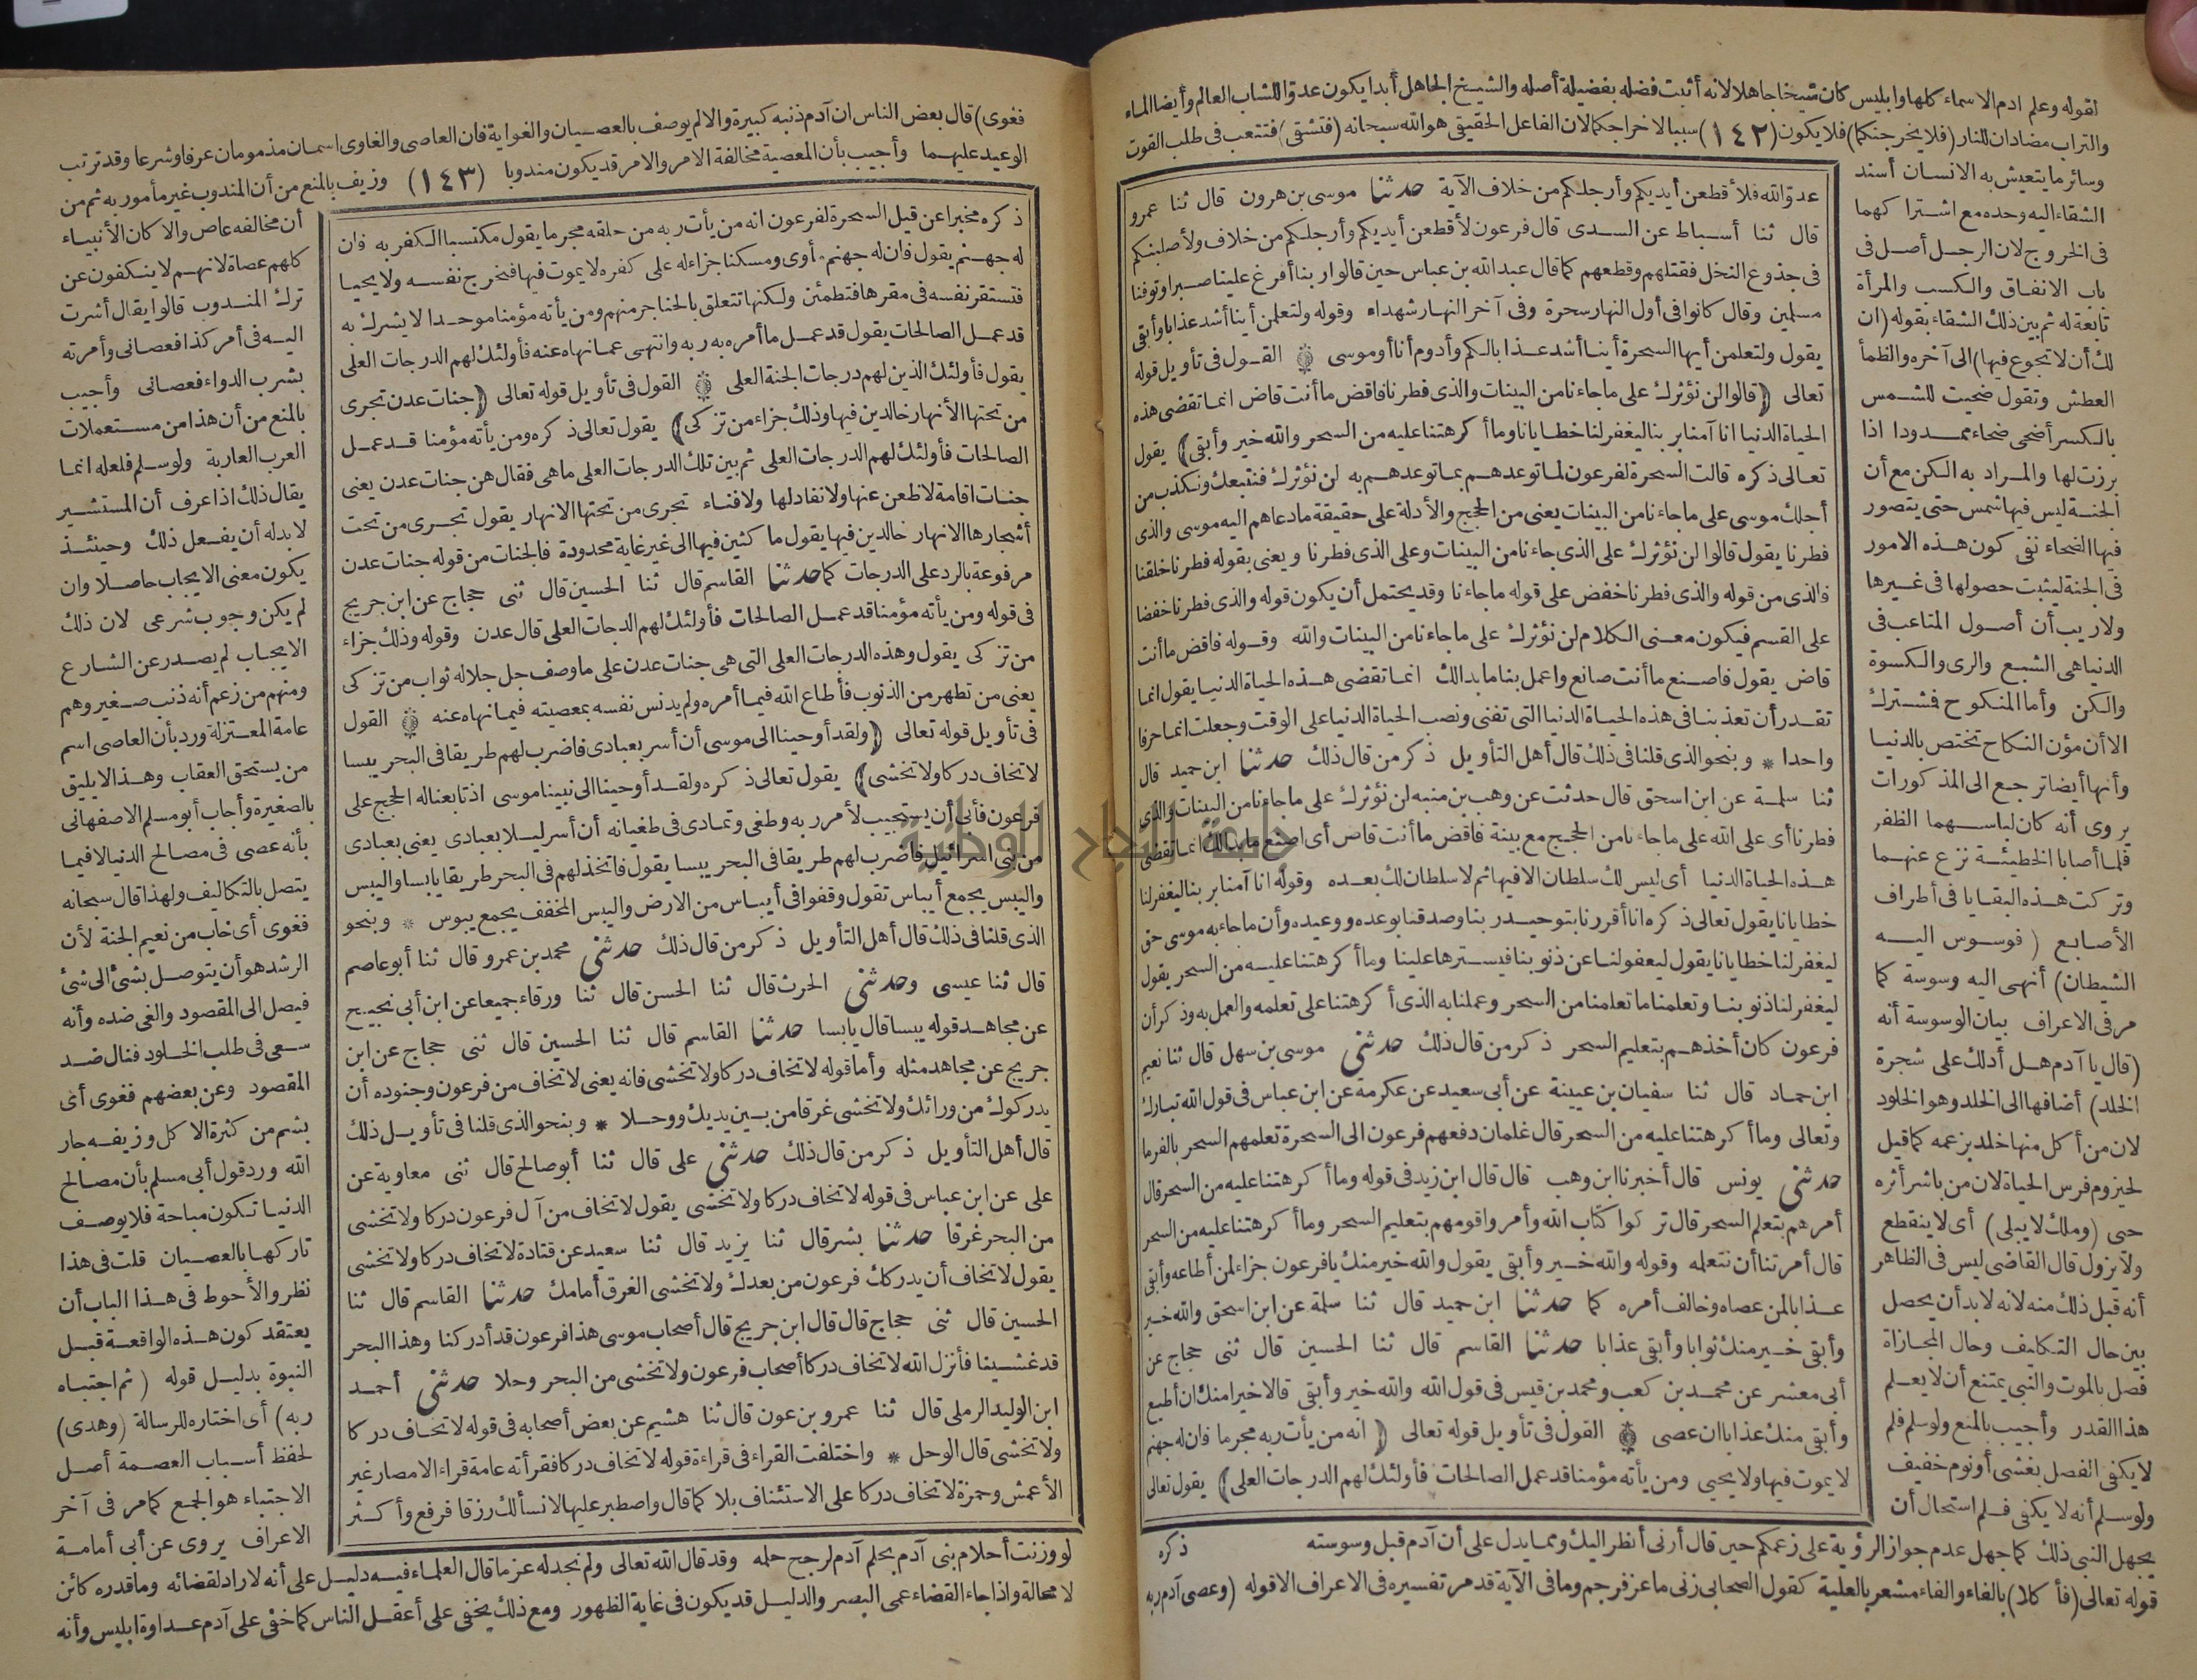 لقوله وعلم آدم الاسماء كلها وابليس كان شيخا جاهلا لانه أثبت فضله بفضيلة أصله والشيخ الجاهل أبدا يكون عدوا للشاب العالم وأيضا الماء
والتراب مضادان للنار (فلا يخرجنكما) فلا يكون (١٤٢) سببا لاخراجكما لان الفاعل الحقيقى هو الله سبحانه (فتشقى) فتتعب فى طلب القوت
وسائر ما يتعيش به الانسان أسند
الشقاء اليه وحده مع اشترا كهما
فى الخروج لان الرجل أصل فى
باب الانفاق والكسب والمرأة
تابعة له ثم بين ذلك الشقاء بقوله (ان
لك أن لا تجوع فيها) الى آخره والظمأ
العطش وتقول ضحيت للشمس
بالكسر أضحى ضحاء ممدودا اذا
برزت لها والمراد به الكن مع أن
الجنة ليس فيها شمس حتى يتصور
فيها الضحاء نفى كون هذه الامور
فى الجنة ليثبت حصولها فى غيرها
ولا ريب أن أصول المتاعب فى
الدنيا هى الشبع والرى والكسوة
والكن وأما المنكوح فمشترك
الا أن مؤن النكاح تختص بالدنيا
وأنها أيضا ترجع الى المذكورات
يروى أنه كان لباسهما الظفر
فلما أصابا الخطيئة نزع عنهما
وتركت هذه البقايا فى أطراف
الأصابع (فوسوس اليه
الشيطان) أنهى اليه وسوسة كما
مر فى الاعراف بيان الوسوسة أنه
(قال يا آدم هل أدلك على شجرة
الخلد) أضافها الى الخلد وهو الخلود
لان من أكل منها خلد بزعمه كما قيل
لحيزوم فرس الحياة لان من باشر أثره
حيى (وملك لا يبلى) أى لا ينقطع
ولا يزول قال القاضى ليس فى الظاهر
أنه قبل ذلك منه لانه لا بد أن يحصل
بين حال التكليف وحال المجازاة
فصل بالموت والنبى يمتنع أن لا يعلم
هذا القدر وأجيب بالمنع ولو سلم فلم
لا يكفى الفصل بغشى أو نوم خفيف
ولو سلم أنه لا يكفى فلم استحال أن
عدو الله فلأ قطعن أيديكم وأرجلكم من خلاف الآية حدثنا موسى بن هرون قال ثنا عمرو
قال ثنا أسباط عن السدى قال فرعون لأقطعن أيديكم وأرجلكم من خلاف ولأصلبنكم
فى جذوع النخل فقتلهم وقطعهم كما قال عبد الله بن عباس حين قالوا ربنا أفرغ علينا صبرا وتوفنا
مسلمين وقال كانوا فى أول النهار سحرة وفى آخر النهار شهداء وقوله ولتعلمن أينا أشد عذابا وأبقى
يقول ولتعلمن أيها السحرة أينا أشد عذابا لكم وأدوم أنا أو موسى ۞ القول فى تأويل قوله
تعالى (قالوا لن نؤثرك على ما جاءنا من البينات والذى فطرنا فاقض ما أنت قاض انما تقضى هذه
الحياة الدنيا انا آمنا بربنا ليغفر لنا خطايانا وما أكرهتنا عليه من السحر والله خير وأبقى) يقول
تعالى ذكره قالت السحرة لفرعون لما توعدهم بما توعدهم به لن نؤثرك فنتبعك ونكذب من
أجلك موسى على ما جاءنا من البينات يعنى من الحجج والأدلة على حقيقة ما دعاهم اليه موسى والذى
فطرنا يقول قالوا لن نؤثرك على الذى جاءنا من البينات وعلى الذى فطرنا ويعنى بقوله فطرنا خلقنا
فالذى من قوله والذى فطرنا خفض على قوله ما جاءنا وقد يحتمل أن يكون قوله والذى فطرنا خفضا
على القسم فيكون معنى الكلام لن نؤثرك على ما جاءنا من البينات والله وقوله فاقض ما أنت
قاض يقول فاصنع ما أنت صانع واعمل بنا ما بدا لك انما تقضى هذه الحياة الدنيا يقول انما
تقدر أن تعذبنا فى هذه الحياة الدنيا التى تفنى ونصب الحياة الدنيا على الوقت وجعلت انما حرفا
واحدا * وبنحو الذى قلنا فى ذلك قال أهل التأويل ذكر من قال ذلك حدثنا ابن حميد قال
ثنا سلمة عن ابن اسحق قال حدثت عن وهب بن منبه لن نؤثرك على ما جاءنا من البينات والذى
فطرنا أى على الله على ما جاءنا من الحجج مع بينة فاقض ما أنت قاض أى اصنع ما بدا لك انما تقضى
هذه الحياة الدنيا أى ليس لك سلطان الا فيها ثم لا سلطان لك بعده وقوله انا آمنا بربنا ليغفر لنا
خطايانا يقول تعالى ذكره انا أقررنا بتوحيد ربنا وصدقنا بوعده ووعيده وأن ما جاء به موسى حق
ليغفر لنا خطايانا يقول ليعفو لنا عن ذنوبنا فيسترها علينا وما أكرهتنا عليه من السحر يقول
ليغفر لنا ذنوبنا وتعلمنا ما تعلمنا من السحر وعملنا به الذى أكرهتنا على تعلمه والعمل به وذكر أن
فرعون كان أخذهم بتعليم السحر ذكر من قال ذلك حدثنى موسى بن سهل قال ثنا نعيم
ابن حماد قال ثنا سفيان بن عيينة عن أبى سعيد عن عكرمة عن ابن عباس فى قول الله تبارك
وتعالى وما أكرهتنا عليه من السحر قال غلمان دفعهم فرعون الى السحرة تعلمهم السحر بالفرما
حدثنى يونس قال أخبرنا ابن وهب قال قال ابن زيد فى قوله وما أكرهتنا عليه من السحر قال
أمرهم بتعلم السحر قال تركوا كتاب الله وأمروا قومهم بتعليم السحر وما أكرهتنا عليه من السحر
قال أمرتنا أن نتعلمه وقوله والله خير وأبقى يقول والله خير منك يا فرعون جزاء لمن أطاعه وأبقى
عذابا لمن عصاه وخالف أمره كما حدثنا ابن حميد قال ثنا سلمة عن ابن اسحق والله خير
وأبقى خير منك ثوابا وأبقى عذابا حدثنا القاسم قال ثنا الحسين قال ثنى حجاج عن
أبى معشر عن محمد بن كعب ومحمد بن قيس فى قول الله والله خير وأبقى قالا خيرا منك ان أطيع
وأبقى منك عذابا ان عصى ۞ القول فى تأويل قوله تعالى (انه من يأت ربه مجرما فان له جهنم
لا يموت فيها ولا يحيى ومن يأته مؤمنا قد عمل الصالحات فأولئك لهم الدرجات العلى) يقول تعالى
يجهل النبى ذلك كما جهل عدم جواز الرؤية على زعمكم حين قال أرنى أنظر اليك ومما يدل على أن آدم قبل وسوسته ذكره
قوله تعالى (فأكلا) بالفاء والفاء مشعر بالعلية كقول الصحابى زنى ماعز فرجم وما فى الآية قد مر تفسيره فى الاعراف الا قوله (وعصى آدم ربه
فغوى) قال بعض الناس ان آدم ذنبه كبيرة والا لم يوصف بالعصيان والغواية فان العاصى والغاوى اسمان مذمومان عرفا وشرعا وقد ترتب
الوعيد عليهما وأجيب بأن المعصية مخالفة الامر والامر قد يكون مندوبا (١٤٣) وزيف بالمنع من أن المندوب غير مأمور به ثم من
أن مخالفه عاص والا كان الأنبياء
كلهم عصاة لانهم لا ينكفون عن
ترك المندوب قالوا يقال أشرت
اليه فى أمر كذا فعصانى وأمرته
بشرب الدواء فعصانى وأجيب
بالمنع من أن هذا من مستعملات
العرب العاربة ولو سلم فلعله انما
يقال ذلك اذا عرف أن المستشير
لا بد له أن يفعل ذلك وحينئذ
يكون معنى الايجاب حاصلا وان
لم يكن وجوب شرعى لان ذلك
الايجاب لم يصدر عن الشارع
ومنهم من زعم أنه ذنب صغير وهم
عامة المعتزلة ورد بأن العاصى اسم
من يستحق العقاب وهذا لا يليق
بالصغيرة وأجاب أبو مسلم الاصفهانى
بأنه عصى فى مصالح الدنيا لا فيما
يتصل بالتكاليف ولهذا قال سبحانه
فغوى أى خاب من نعيم الجنة لأن
الرشد هو أن يتوصل بشئ الى شئ
فيصل الى المقصود والغى ضده وأنه
سعى فى طلب الخلود فنال ضد
المقصود وعن بعضهم فغوى أى
بشم من كثرة الاكل وزيفه جار
الله ورد قول أبى مسلم بأن مصالح
الدنيا تكون مباحة فلا يوصف
تاركها بالعصيان قلت فى هذا
نظر والأحوط فى هذا الباب أن
يعتقد كون هذه الواقعة قبل
النبوة بدليل قوله (ثم اجتباه
ربه) أى اختاره للرسالة (وهدى)
لحفظ أسباب العصمة أصل
الاجتباء هو الجمع كما مر فى آخر
الاعراف يروى عن أبى أمامة
ذكره مخبرا عن قيل السحرة لفرعون انه من يأت ربه من خلقه مجرما يقول مكتسبا الكفر به فان
له جهنم يقول فان له جهنم مأوى ومسكنا جزاء له على كفره لا يموت فيها فتخرج نفسه ولا يحيا
فتستقر نفسه فى مقرها فتطمئن ولكنها تتعلق بالحناجر منهم ومن يأته مؤمنا موحدا لا يشرك به
قد عمل الصالحات يقول قد عمل ما أمره به ربه وانتهى عما نهاه عنه فأولئك لهم الدرجات العلى
يقول فأولئك الذين لهم درجات الجنة العلى ۞ القول فى تأويل قوله تعالى (جنات عدن تجرى
من تحتها الأنهار خالدين فيها وذلك جزاء من تزكى) يقول تعالى ذكره ومن يأته مؤمنا قد عمل
الصالحات فأولئك لهم الدرجات العلى ثم بين تلك الدرجات العلى ما هى فقال هن جنات عدن يعنى
جنات اقامة لا ظعن عنها ولا نفاد لها ولا فناء تجرى من تحتها الانهار يقول تجرى من تحت
أشجارها الانهار خالدين فيها يقول ماكثين فيها الى غير غاية محدودة فالجنات من قوله جنات عدن
مرفوعة بالرد على الدرجات كما حدثنا القاسم قال ثنا الحسين قال ثنى حجاج عن ابن جريج
فى قوله ومن يأته مؤمنا قد عمل الصالحات فأولئك لهم الدجات العلى قال عدن وقوله وذلك جزاء
من تزكى يقول وهذه الدرجات العلى التى هى جنات عدن على ما وصف جل جلاله ثواب من تزكى
يعنى من تطهر من الذنوب فأطاع الله فيما أمره ولم يدنس نفسه بمعصيته فيما نهاه عنه ۞ القول
فى تأويل قوله تعالى (ولقد أوحينا الى موسى أن أسر بعبادى فاضرب لهم طريقا فى البحر يبسا
لا تخاف دركا ولا تخشى) يقول تعالى ذكره ولقد أوحينا الى نبينا موسى اذ تابعنا له الحجج على
فرعون فأبى أن يستجيب لأمر ربه وطغى وتمادى فى طغيانه أن أسر ليلا بعبادى يعنى بعبادى
من بنى اسرائيل فاضرب لهم طريقا فى البحر يبسا يقول فاتخذ لهم فى البحر طريقا يابسا واليبس
واليبس يجمع أيباس تقول وقفوا فى أيباس من الارض واليبس المخفف يجمع يبوس * وبنحو
الذى قلنا فى ذلك قال أهل التأويل ذكر من قال ذلك حدثنى محمد بن عمرو قال ثنا أبو عاصم
قال ثنا عيسى وحدثنى الحرث قال ثنا الحسن قال ثنا ورقاء جميعا عن ابن أبى نجيح
عن مجاهد قوله يبسا قال يابسا حدثنا القاسم قال ثنا الحسين قال ثنى حجاج عن ابن
جريج عن مجاهد مثله وأما قوله لا تخاف دركا ولا تخشى فانه يعنى لا تخاف من فرعون وجنوده أن
يدركوك من ورائك ولا تخشى غرقا من بين يديك ووحلا * وبنحو الذى قلنا فى تأويل ذلك
قال أهل التأويل ذكر من قال ذلك حدثنى على قال ثنا أبو صالح قال ثنى معاوية عن
على عن ابن عباس فى قوله لا تخاف دركا ولا تخشى يقول لا تخاف من آل فرعون دركا ولا تخشى
من البحر غرقا حدثنا بشر قال ثنا يزيد قال ثنا سعيد عن قتادة لا تخاف دركا ولا تخشى
يقول لا تخاف أن يدركك فرعون من بعدك ولا تخشى الغرق أمامك حدثنا القاسم قال ثنا
الحسين قال ثنى حجاج قال قال ابن جريج قال أصحاب موسى هذا فرعون قد أدركنا وهذا البحر
قد غشينا فأنزل الله لا تخاف دركا أصحاب فرعون ولا تخشى من البحر وحلا حدثنى أحمد
ابن الوليد الرملى قال ثنا عمرو بن عون قال ثنا هشيم عن بعض أصحابه فى قوله لا تخاف دركا
ولا تخشى قال الوحل * واختلفت القراء فى قراءة قوله لا تخاف دركا فقرأته عامة قراء الامصار غير
الأعمش وحمزة لا تخاف دركا على الاستئناف بلا كما قال واصطبر عليها لا نسألك رزقا فرفع وأكثر
لو وزنت أحلام بنى آدم بحلم آدم لرجح حلمه وقد قال الله تعالى ولم نجد له عزما قال العلماء فيه دليل على أنه لا راد لقضائه وما قدره كائن
لا محالة واذا جاء القضاء عمى البصر والدليل قد يكون فى غاية الظهور ومع ذلك يخفى على أعقل الناس كما خفى على آدم عداوة ابليس وأنه